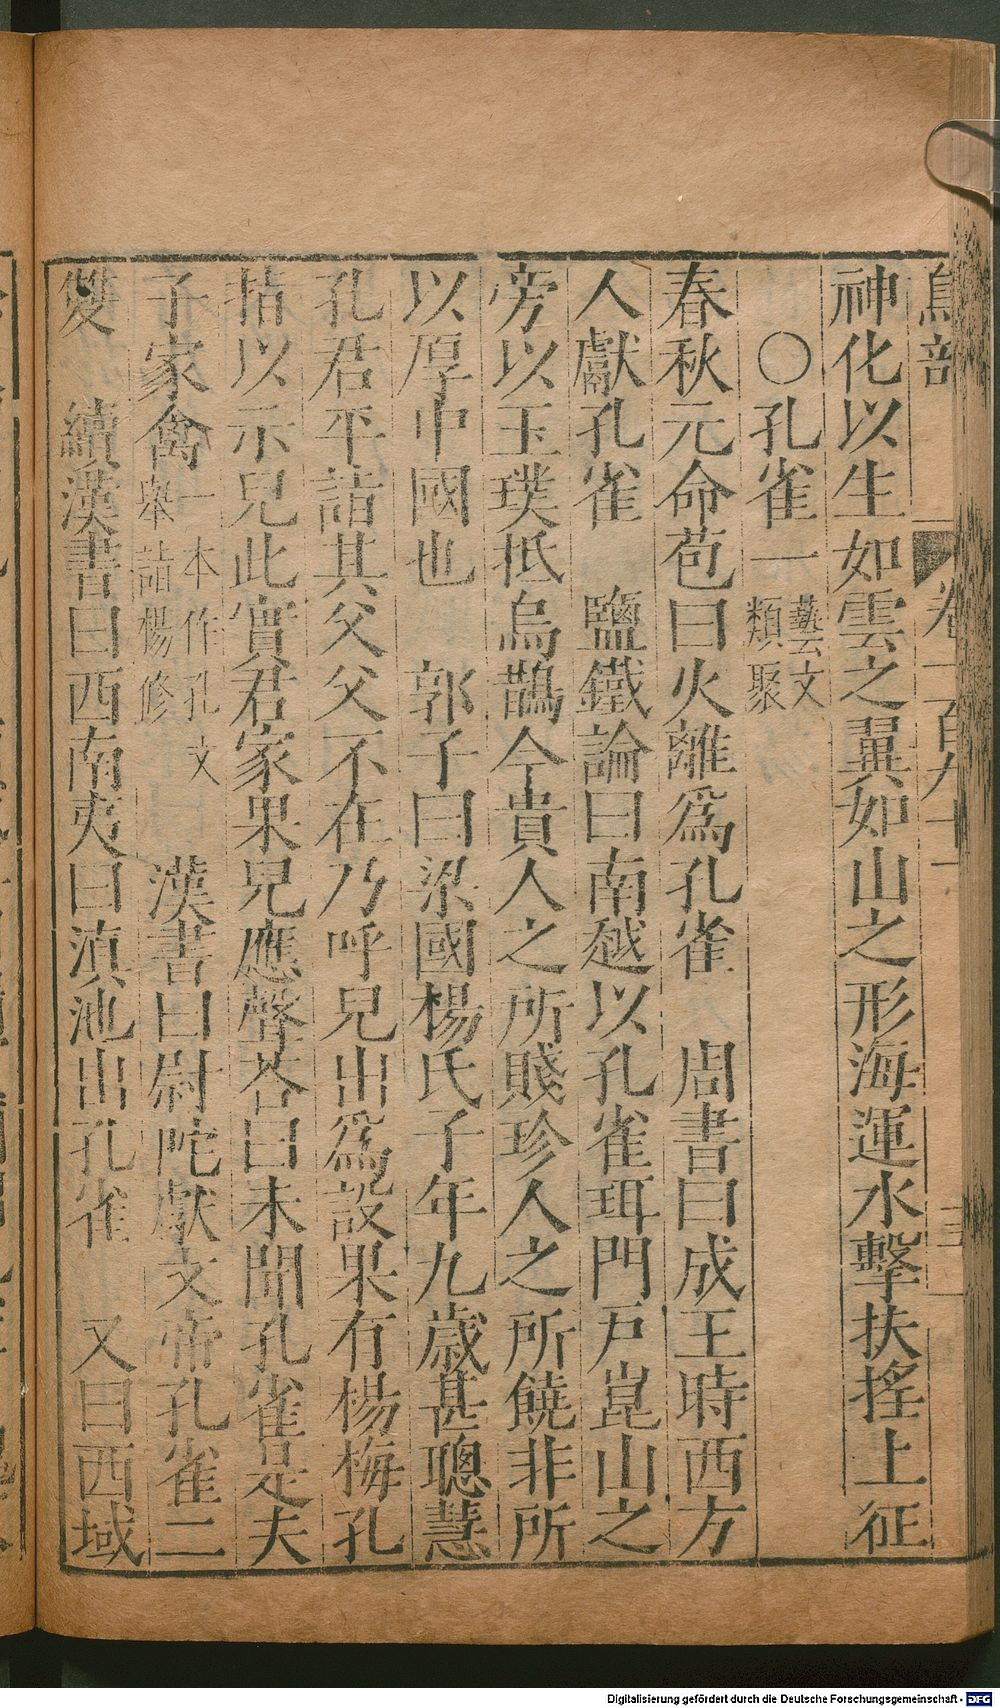 鳥部 卷一百九十一 三
神化以生如雲之翼如山之形海運水擊扶搖上征
〇孔雀一 藝文類聚
春秋元命苞曰火離爲孔雀 周書曰成王時西方
人獻孔雀 鹽鐵論曰南越以孔雀珥門戶崑山之
旁以玉璞抵烏鵲今貴人之所賤珍人之所饒非所
以厚中國也 郭子曰梁國楊氏子年九歲甚聰慧
孔君平詣其父父不在乃呼兒出爲設果有楊梅孔
指以示兒此實君家果兒應聲荅曰未聞孔雀是夫
子家禽 一本作孔文舉詣楊修 漢書曰尉陀獻文帝孔雀二
雙 續漢書曰西南夷曰滇池出孔雀 又曰西域
Digitalisierung gefördert durch die Deutsche Forschungsgemeinschaft - DFG